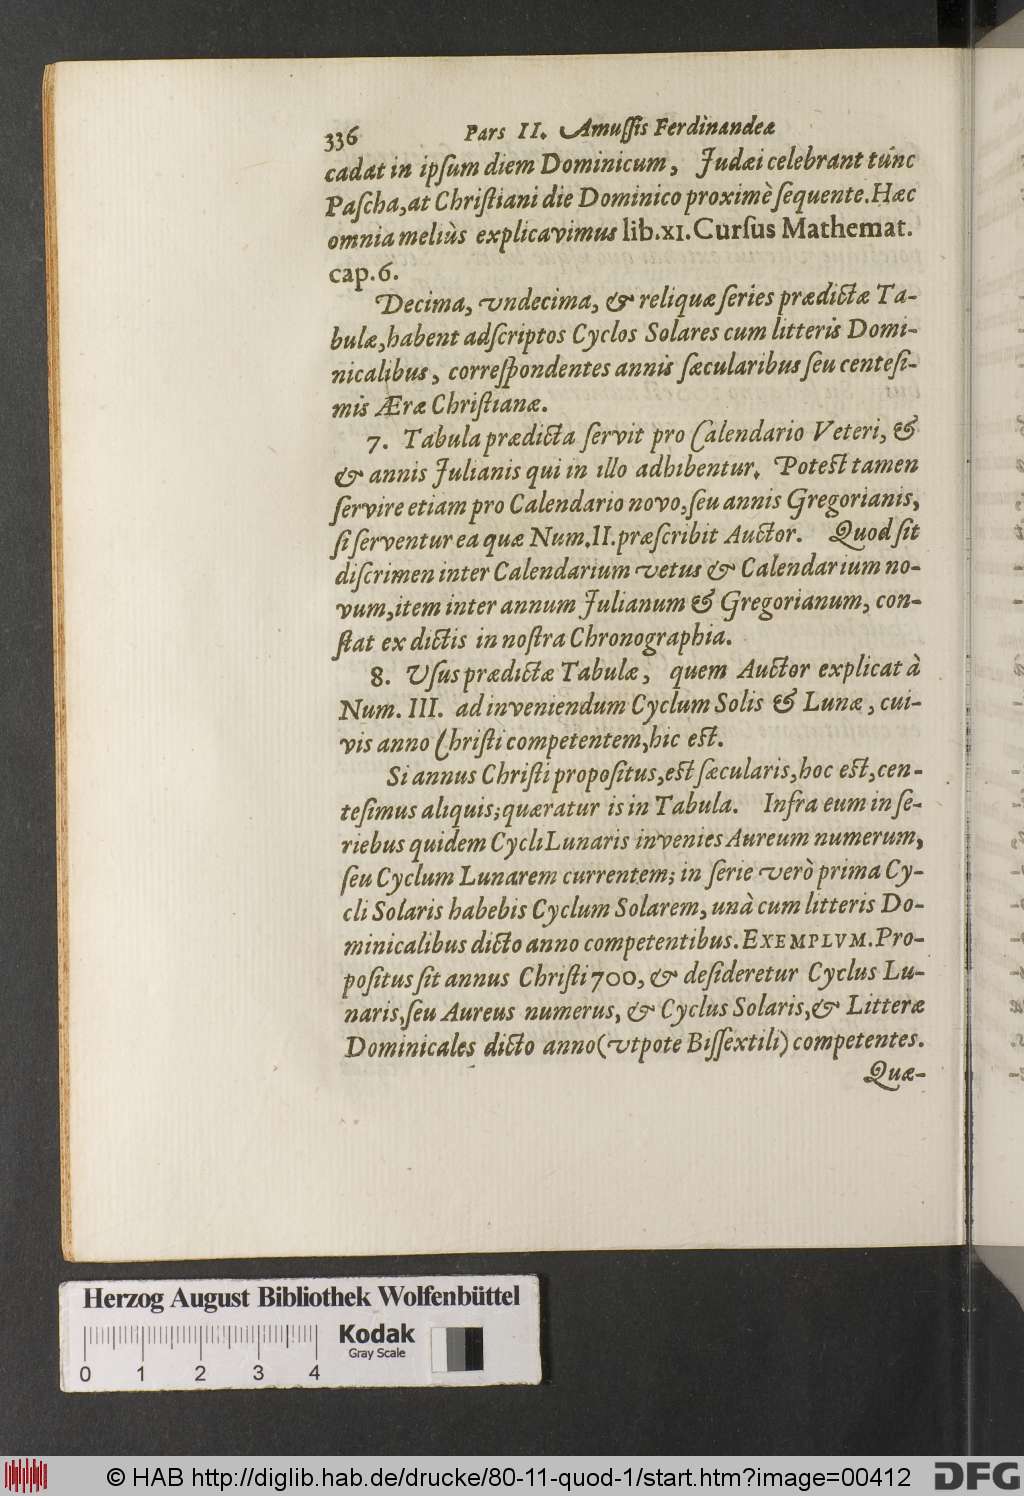 336 Pars II. Amussis Ferdinandeæ
cadat in ipsum diem Dominicum, Judæi celebrant túnc
Pascha, at Christiani die Dominico proximè sequente. Hæc
omnia meliùs explicavimus lib. XI. Cursus Mathemat.
cap. 6.
Decima, vndecima, & reliquæ series prædictæ Ta-
bulæ, habent adscriptos Cyclos Solares cum litteris Domi-
nicalibus, correspondentes annis sæcularibus seu centesi-
mis Æræ Christianæ.
7. Tabula prædicta servit pro Calendario Veteri, &
& annis Julianis qui in illo adhibentur. Potest tamen
servire etiam pro Calendario novo, seu annis Gregorianis,
si serventur ea quæ Num. II. præscribit Auctor. Quod sit
discrimen inter Calendarium vetus & Calendarium no-
vum, item inter annum Julianum & Gregorianum, con-
stat ex dictis in nostra Chronographia.
8. Vsus prædictæ Tabulæ, quem Auctor explicat à
Num. III. ad inveniendum Cyclum Solis & Lunæ, cui-
vis anno Christi competentem, hic est.
Si annus Christi propositus, est sæcularis, hoc est, cen-
tesimus aliquis; quæratur is in Tabula. Infra eum in se-
riebus quidem Cycli Lunaris invenies Aureum numerum,
seu Cyclum Lunarem currentem; in serie verò prima Cy-
cli Solaris habebis Cyclum Solarem, unà cum litteris Do-
minicalibus dicto anno competentibus. EXEMPLVM. Pro-
positus sit annus Christi 700, & desideretur Cyclus Lu-
naris, seu Aureus numerus, & Cyclus Solaris, & Litteræ
Dominicales dicto anno (vtpote Bissextili) competentes.
Quæ-
Herzog August Bibliothek Wolfenbüttel
Kodak
Gray Scale
0 1 2 3 4
© HAB http://diglib.hab.de/drucke/80-11-quod-1/start.htm?image=00412
DFG